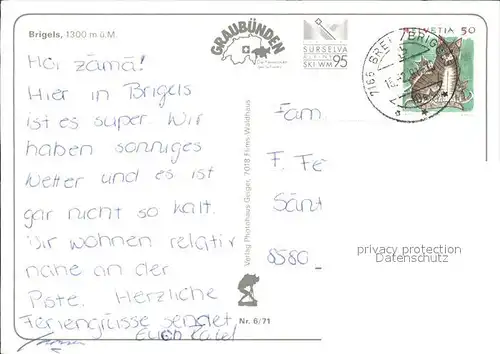 Brigels, 1300 m ü.M.
GRAUBÜNDEN
SURSELVA
SKI WM 95
HELVETIA 50
7165 BREIL/BRIGELS
Hoi zämä!
Hier in Brigels
ist es super. Wir
haben sonniges
Wetter und es ist
gar nicht so kalt.
Wir wohnen relativ
nahe an der
Piste. Herzliche
Feriengrüsse sendet
Euch
Verlag Photohaus Geiger, 7018 Flims Waldhaus
Nr. 6/71
Fam
F. Fe
Sänt
8580
privacy protection
Datenschutz